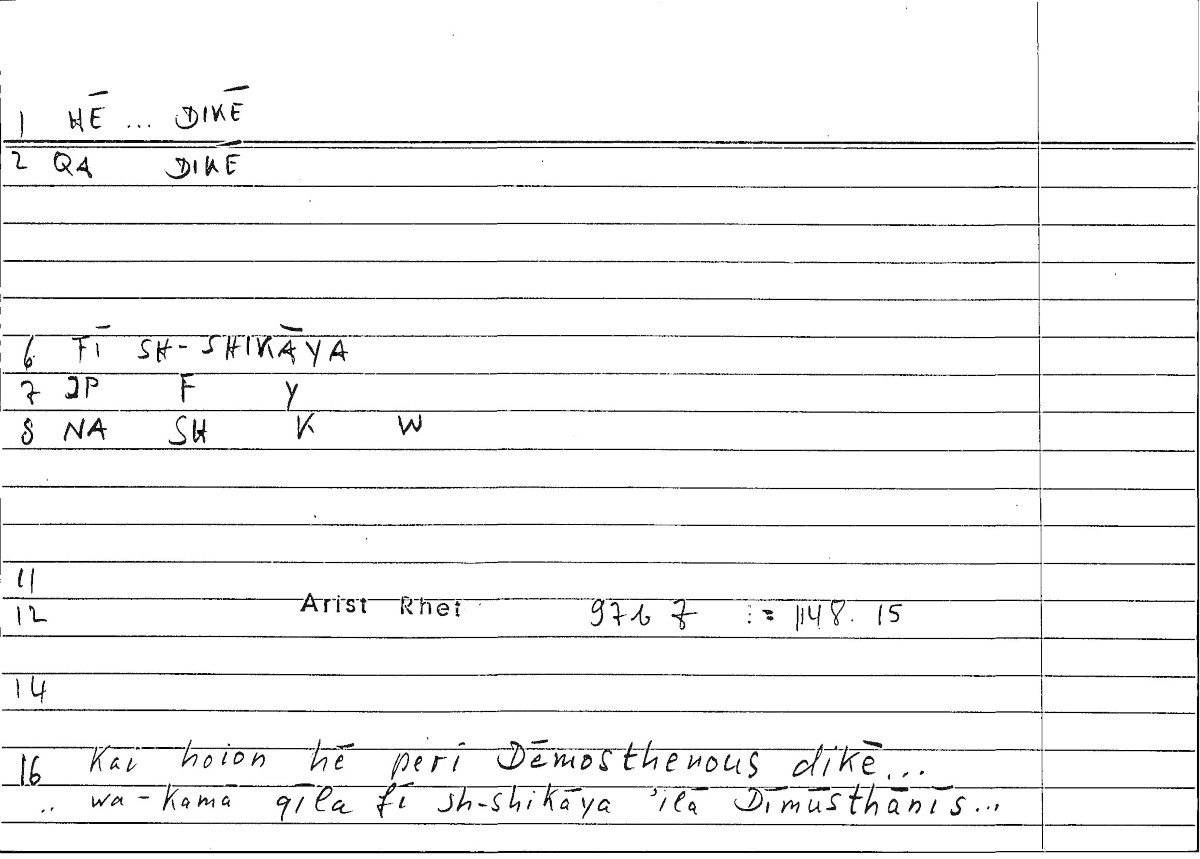 1 HĒ ... DIKĒ
2 QA DIKĒ
6 FĪ SH-SHIKĀYA
7 JP F Y
8 NA SH K W
11
12 Arist Rhet 97b 7 := 148.15
14
16 Kai hoion hē peri Dēmosthenous dikē...
.. wa-kamā qīla fī sh-shikāya 'ilā Dīmūsthānīs...